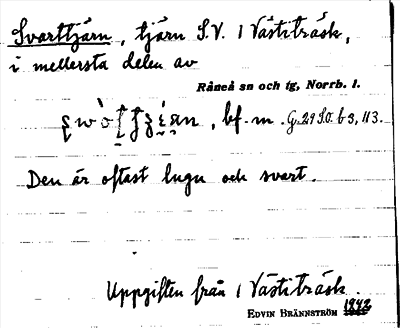 Svarttjärn, tjärn S.V. / Västiträsk,
i mellersta delen av
Råneå sn och tg, Norrb. l.
bf. m. G. 29 S.O. b 3, 113.
Den är oftast lugn och svart.
Uppgiften från / Västiträsk.
EDVIN BRÄNNSTRÖM 1942